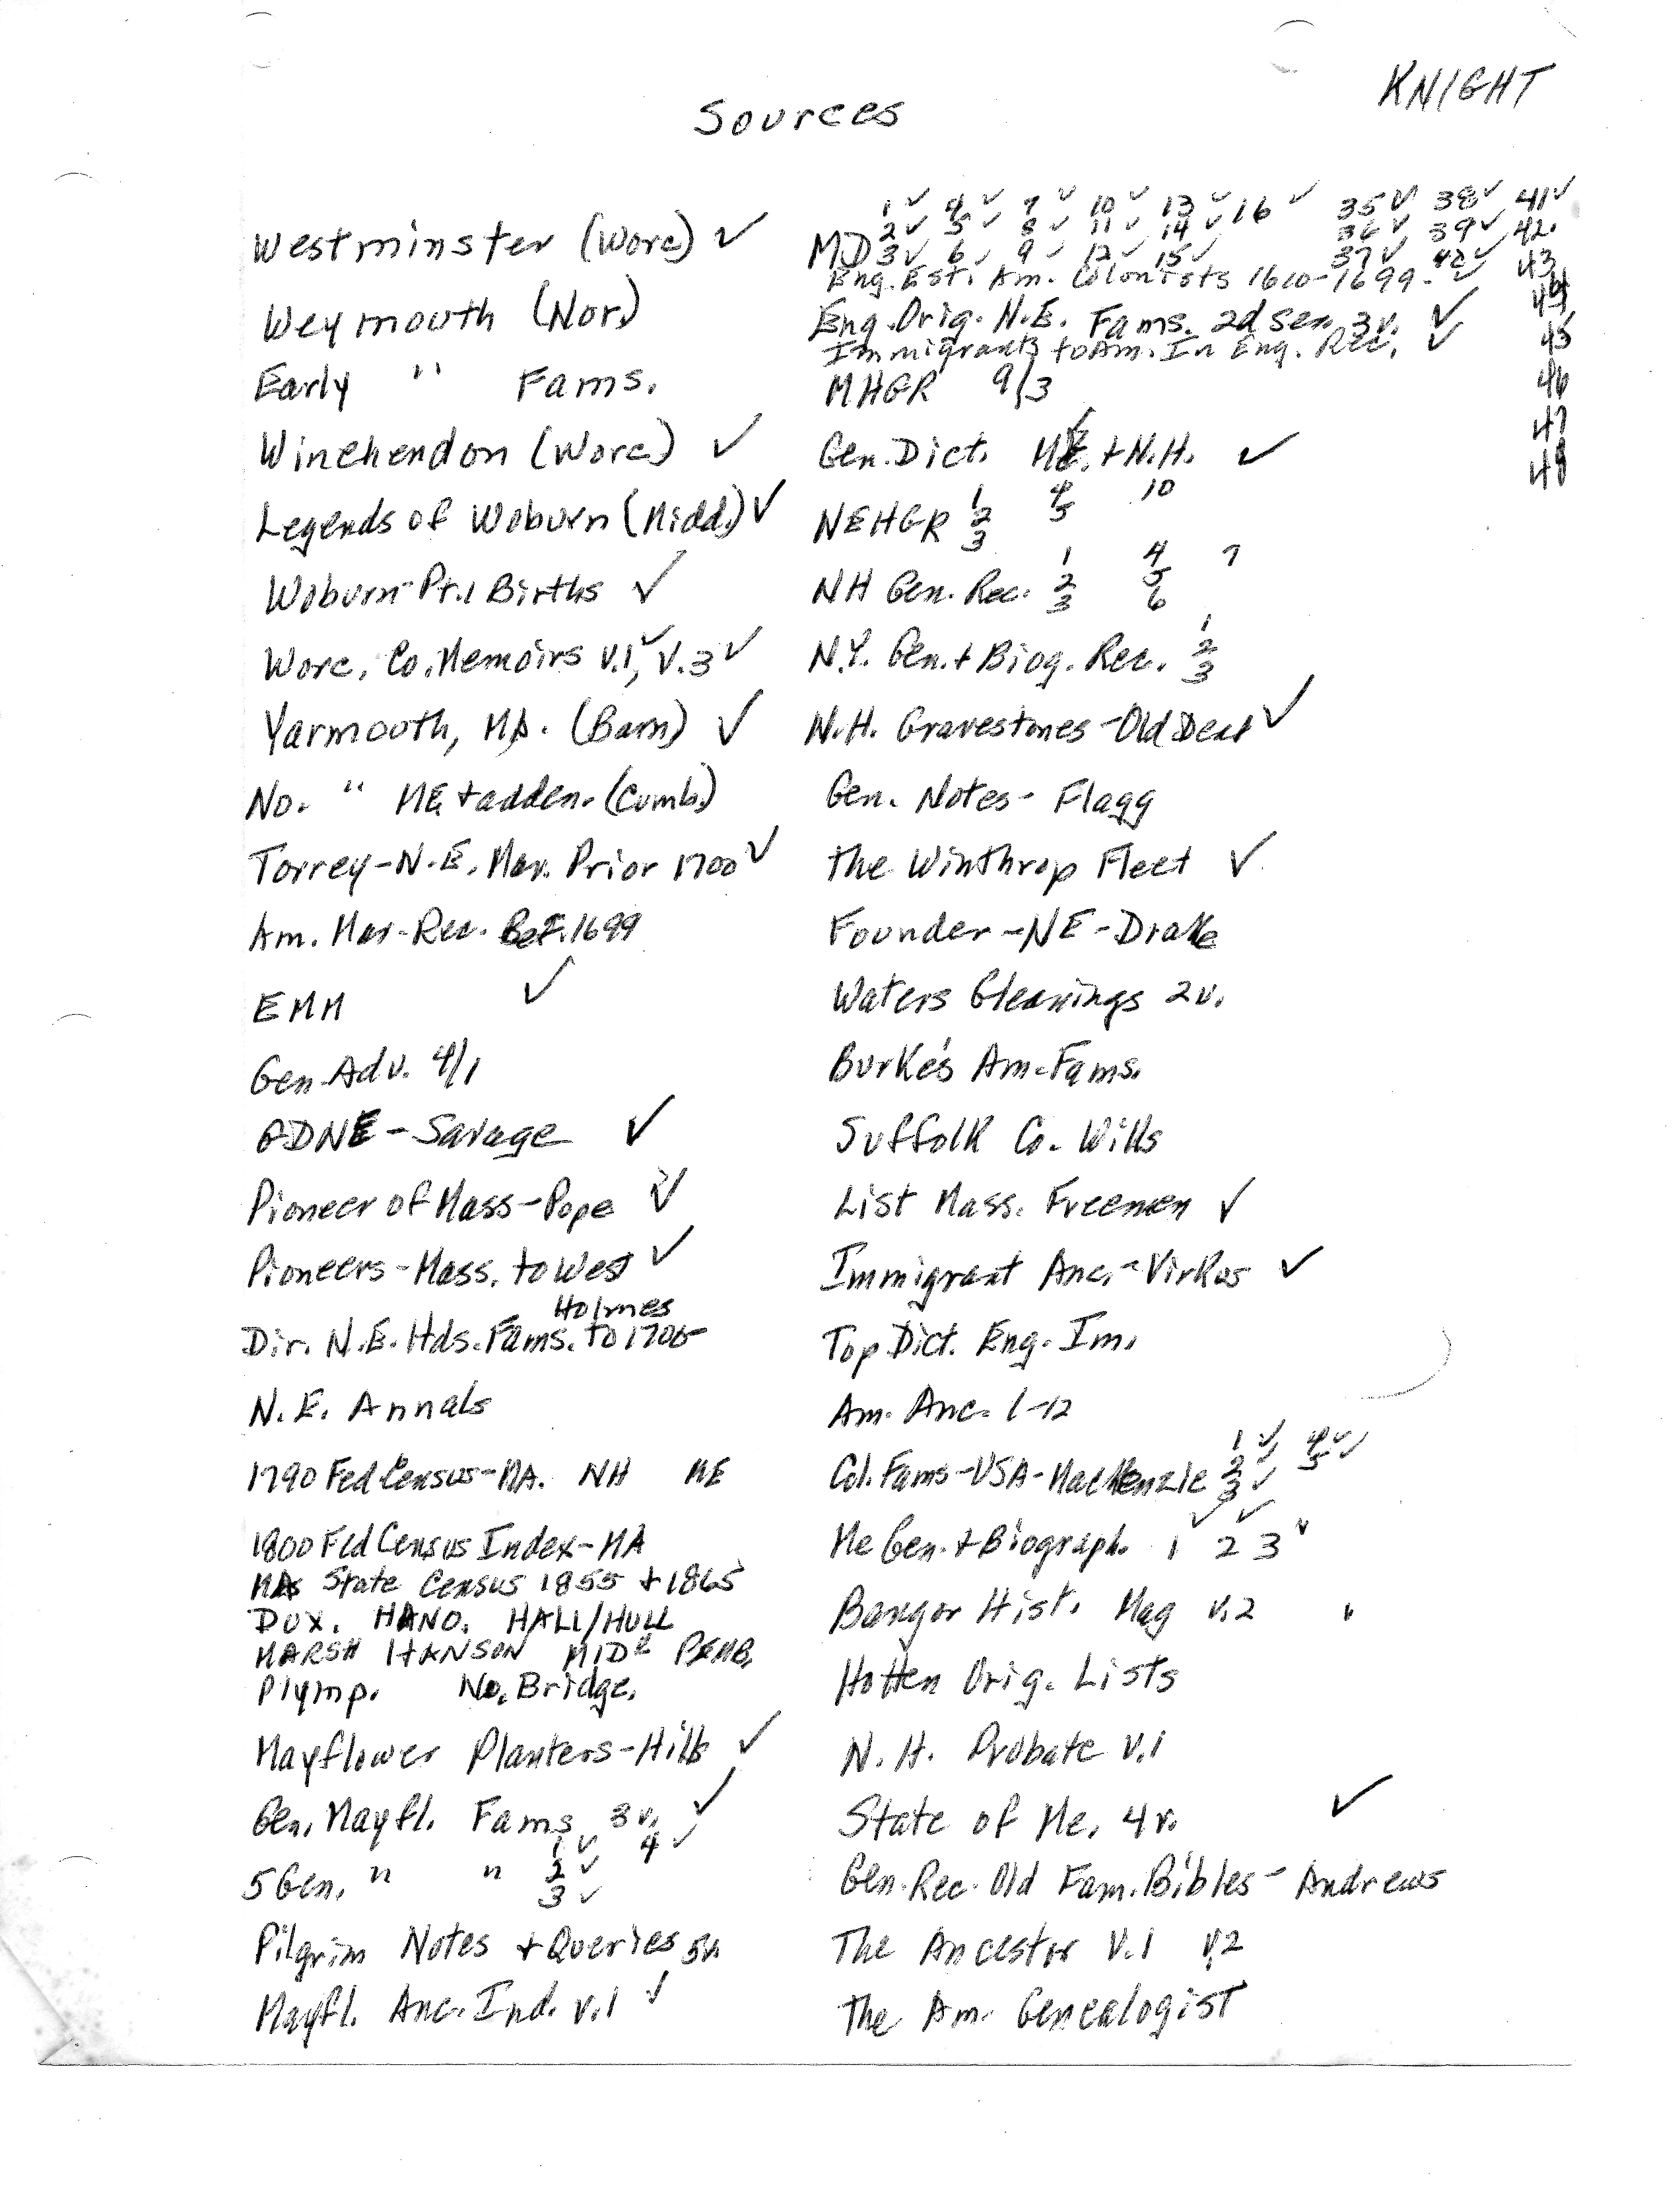 KNIGHT
Sources
Westminster (Worc) ✓
Weymouth (Nor.)
Early " Fams.
Winchendon (Worc.) ✓
Legends of Woburn (Midd.) ✓
Woburn-Pt.1 Births ✓
Worc. Co. Memoirs v.1, ✓ v.3 ✓
Yarmouth, MA. (Barn) ✓
No. " ME + adden. (Cumb.)
Torrey-N.E. Mar. Prior 1700 ✓
Am. Mar. Rec. Bef. 1699
EMM ✓
Gen. Adv. 4/1
GDNE - Savage ✓
Pioneer of Mass-Pope ✓
Pioneers-Mass. to West ✓
Holmes
Dir. N.E. Hds. Fams. to 1700
N.E. Annals
1790 Fed Census-MA. NH ME
1800 Fed Census Index-MA
MA State Census 1855 + 1865
DUX. HANO. HALI/HULL
MARSH HANSON MIDL PEMB.
Plymp. No. Bridge.
Mayflower Planters-Hills ✓
Gen. Mayfl. Fams 3v. ✓
5 Gen. " " 1 ✓ 2 ✓ 3 ✓ 4 ✓
Pilgrim Notes + Queries 5v.
Mayfl. Anc. Ind. v.1 ✓
1 ✓ 4 ✓ 7 ✓ 10 ✓ 13 ✓ 16 ✓ 35 ✓ 38 ✓ 41 ✓
2 ✓ 5 ✓ 8 ✓ 11 ✓ 14 ✓ 36 ✓ 39 ✓ 42.
MD 3 ✓ 6 ✓ 9 ✓ 12 ✓ 15 ✓ 37 ✓ 40 ✓ 43
44
45
46
47
48
Eng. Est. Am. Colonists 1610-1699 - ✓
Eng. Orig. N.E. Fams. 2d Ser. 3v. ✓
Immigrants to Am. In Eng. Rec. ✓
MHGR 9/3
Gen. Dict. ME. + N.H. ✓
NEHGR 1 2 3 4 5 10
NH Gen. Rec. 1 2 3 4 5 6 7
N.Y. Gen. + Biog. Rec. 1 2 3
N.H. Gravestones-Old Dear ✓
Gen. Notes- Flagg
The Winthrop Fleet ✓
Founder-NE-Drake
Waters Gleanings 2v.
Burke's Am. Fams.
Suffolk Co. Wills
List Mass. Freemen ✓
Immigrant Anc.-Virkus ✓
Top. Dict. Eng. Im.
Am. Anc. 1-12
Col. Fams-USA-MacKenzie 1 ✓ 2 ✓ 3 ✓ 4 ✓ 5 ✓
Me Gen. + Biograph. 1 ✓ 2 ✓ 3 "
Bangor Hist. Mag v.2 "
Hotten Orig. Lists
N.H. Probate v.1
State of Me. 4v. ✓
Gen. Rec. Old Fam. Bibles- Andrews
The Ancestor V.1 v.2
The Am. Genealogist